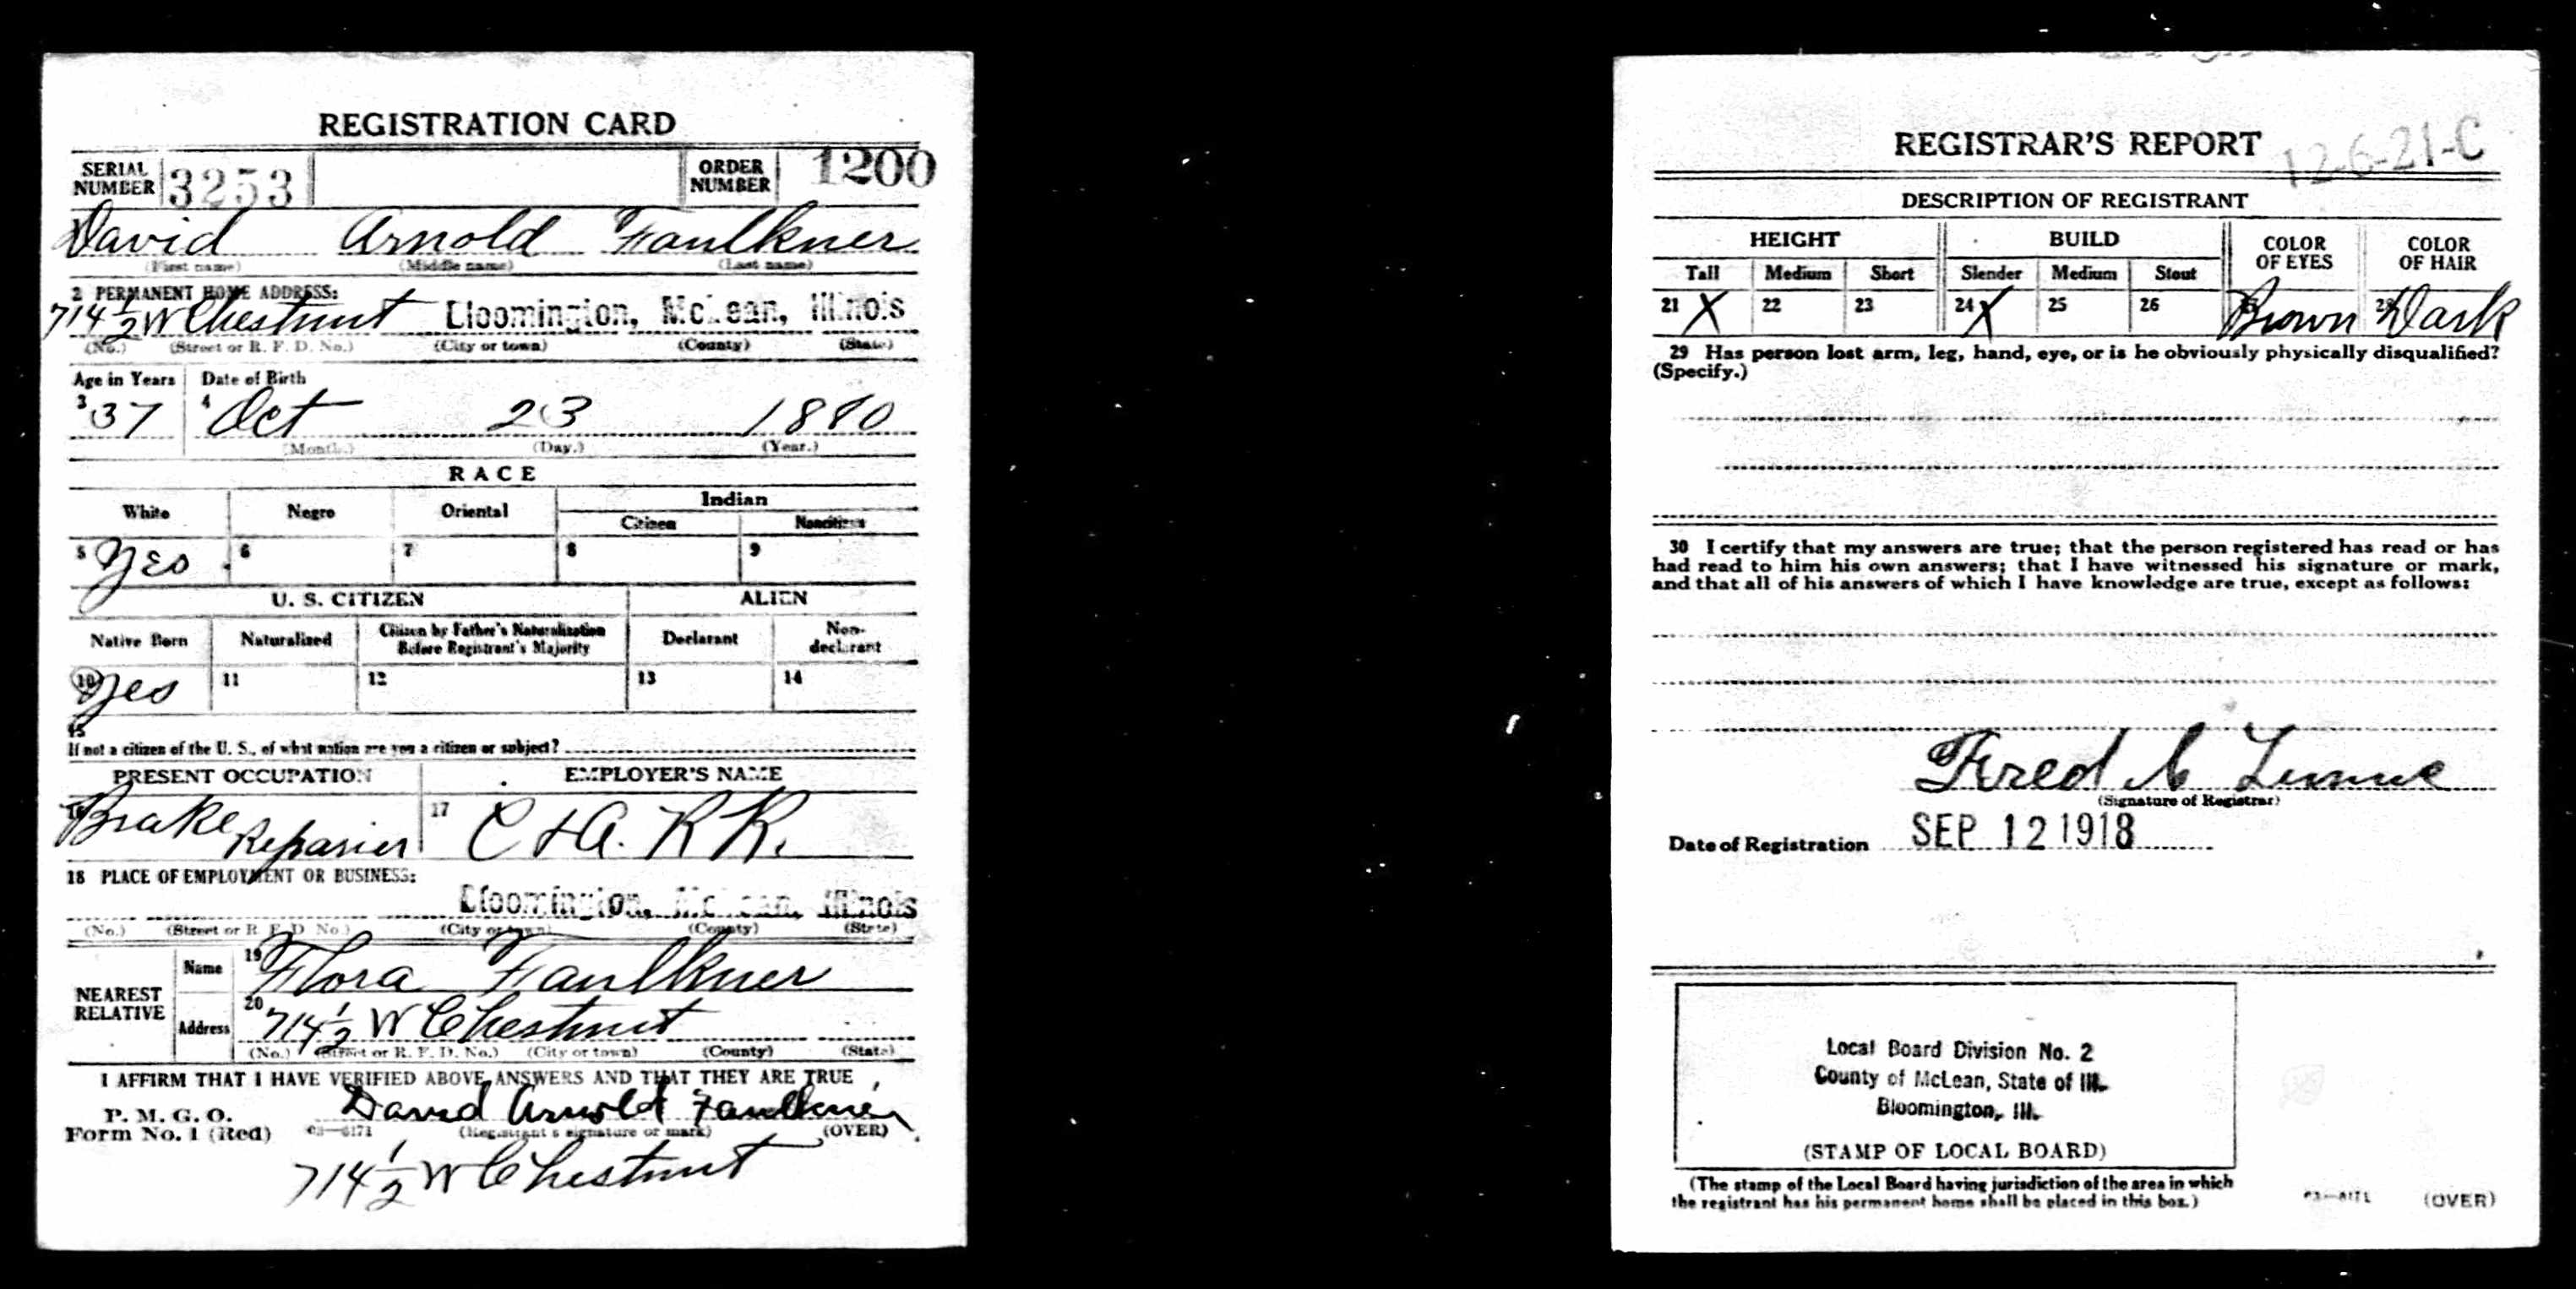 REGISTRATION CARD
SERIAL NUMBER 3253 ORDER NUMBER 1200
David Arnold Faulkner
(First name) (Middle name) (Last name)
2 PERMANENT HOME ADDRESS:
714 1/2 W Chestnut Bloomington, McLean, Illinois
(No.) (Street or R. F. D. No.) (City or town) (County) (State)
Age in Years Date of Birth
3 37 4 Oct 23 1880
(Month.) (Day.) (Year.)
RACE
White Negro Oriental Indian
Citizen Noncitizen
5 Yes 6 7 8 9
U. S. CITIZEN ALIEN
Native Born Naturalized Citizen by Father's Naturalization Before Registrant's Majority Declarant Non-declarant
10 Yes 11 12 13 14
15
If not a citizen of the U. S., of what nation are you a citizen or subject?
PRESENT OCCUPATION EMPLOYER'S NAME
16 Brake Repairier 17 C + A. R R.
18 PLACE OF EMPLOYMENT OR BUSINESS:
Bloomington, McLean, Illinois
(No.) (Street or R. F. D. No.) (City or town) (County) (State)
NEAREST RELATIVE Name 19 Flora Faulkner
Address 20 714 1/2 W Chestnut
(No.) (Street or R. F. D. No.) (City or town) (County) (State)
I AFFIRM THAT I HAVE VERIFIED ABOVE ANSWERS AND THAT THEY ARE TRUE
P. M. G. O.
Form No. 1 (Red) David Arnold Faulkner
03—6171 (Registrant's signature or mark) (OVER)
714 1/2 W Chestnut
REGISTRAR'S REPORT 12-6-21-C
DESCRIPTION OF REGISTRANT
HEIGHT BUILD COLOR OF EYES COLOR OF HAIR
Tall Medium Short Slender Medium Stout
21 X 22 23 24 X 25 26 Brown 28 Dark
29 Has person lost arm, leg, hand, eye, or is he obviously physically disqualified?
(Specify.)
30 I certify that my answers are true; that the person registered has read or has
had read to him his own answers; that I have witnessed his signature or mark,
and that all of his answers of which I have knowledge are true, except as follows:
Fred
(Signature of Registrar)
Date of Registration SEP 12 1918
Local Board Division No. 2
County of McLean, State of Ill.
Bloomington, Ill.
(STAMP OF LOCAL BOARD)
(The stamp of the Local Board having jurisdiction of the area in which
the registrant has his permanent home shall be placed in this box.)
03—6171 (OVER)